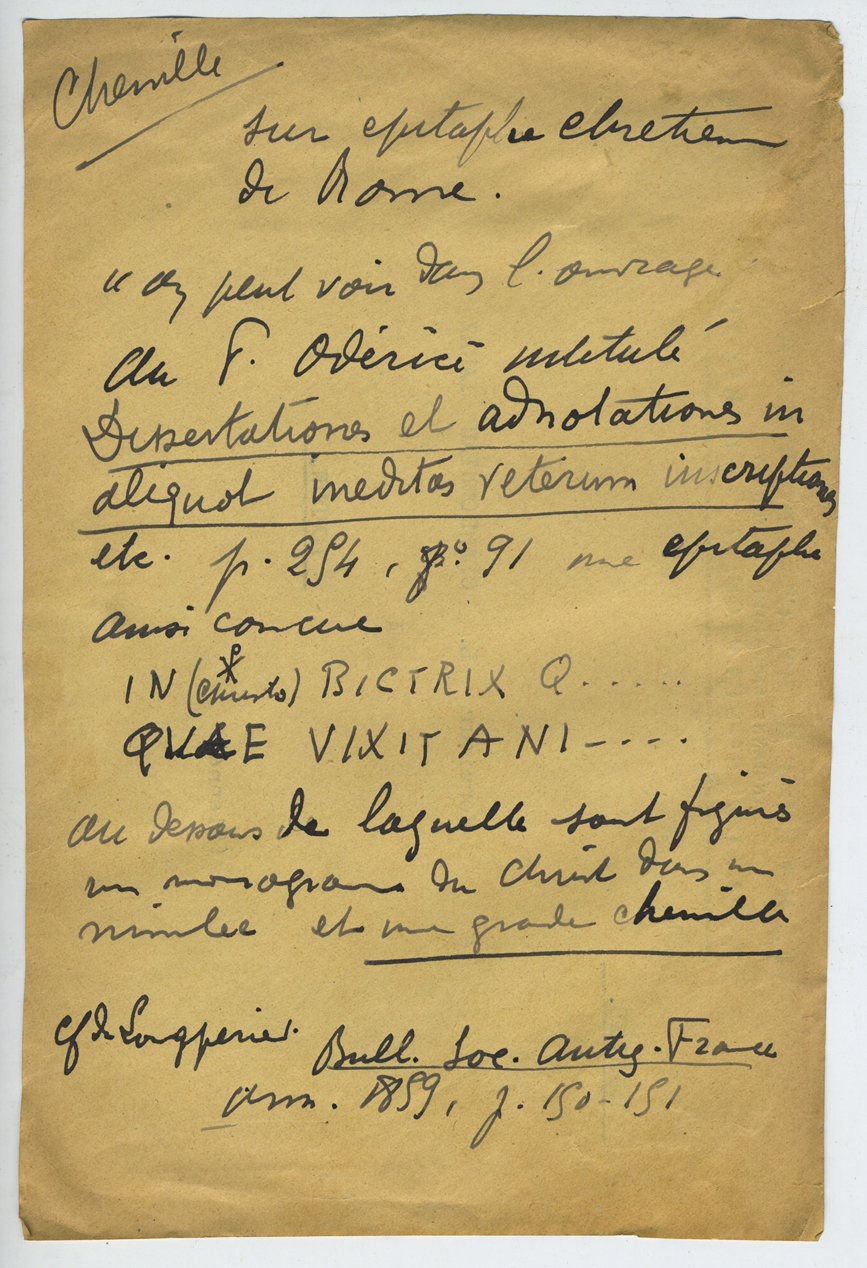 Chenille
sur epitaphe chretienne
de Rome.
"on peut voir dans l. ouvrage
du P. Odérici intitulé
Dissertationes et adnotationes in
aliquot ineditas veterum inscriptiones
etc. p. 254, n° 91 une epitaphe
ainsi concue
IN (christo) BICTRIX Q......
QUAE VIXIT ANI----
au dessous de laquelle sont figurés
un monogramme du Christ dans un
nimbe et une grande chenille
cf de Longperier. Bull. Soc. Antiq. France
ann. 1859, p. 150-151